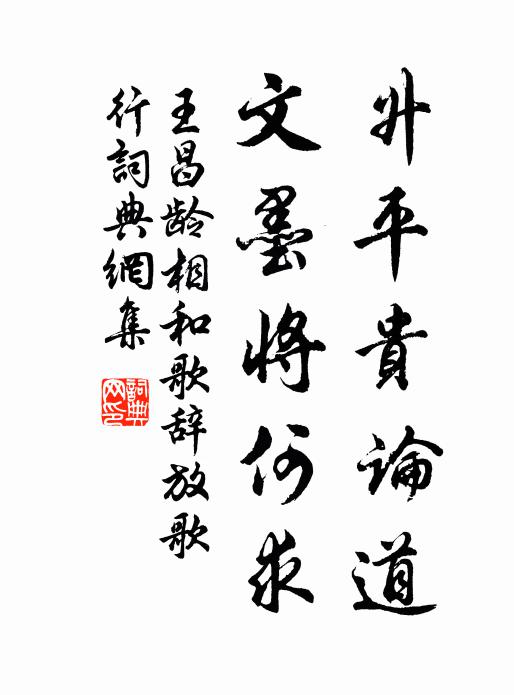 升平貴論道
文墨將何求
王昌龄相和歌辞放歌
行詞典網集
詞典
网印